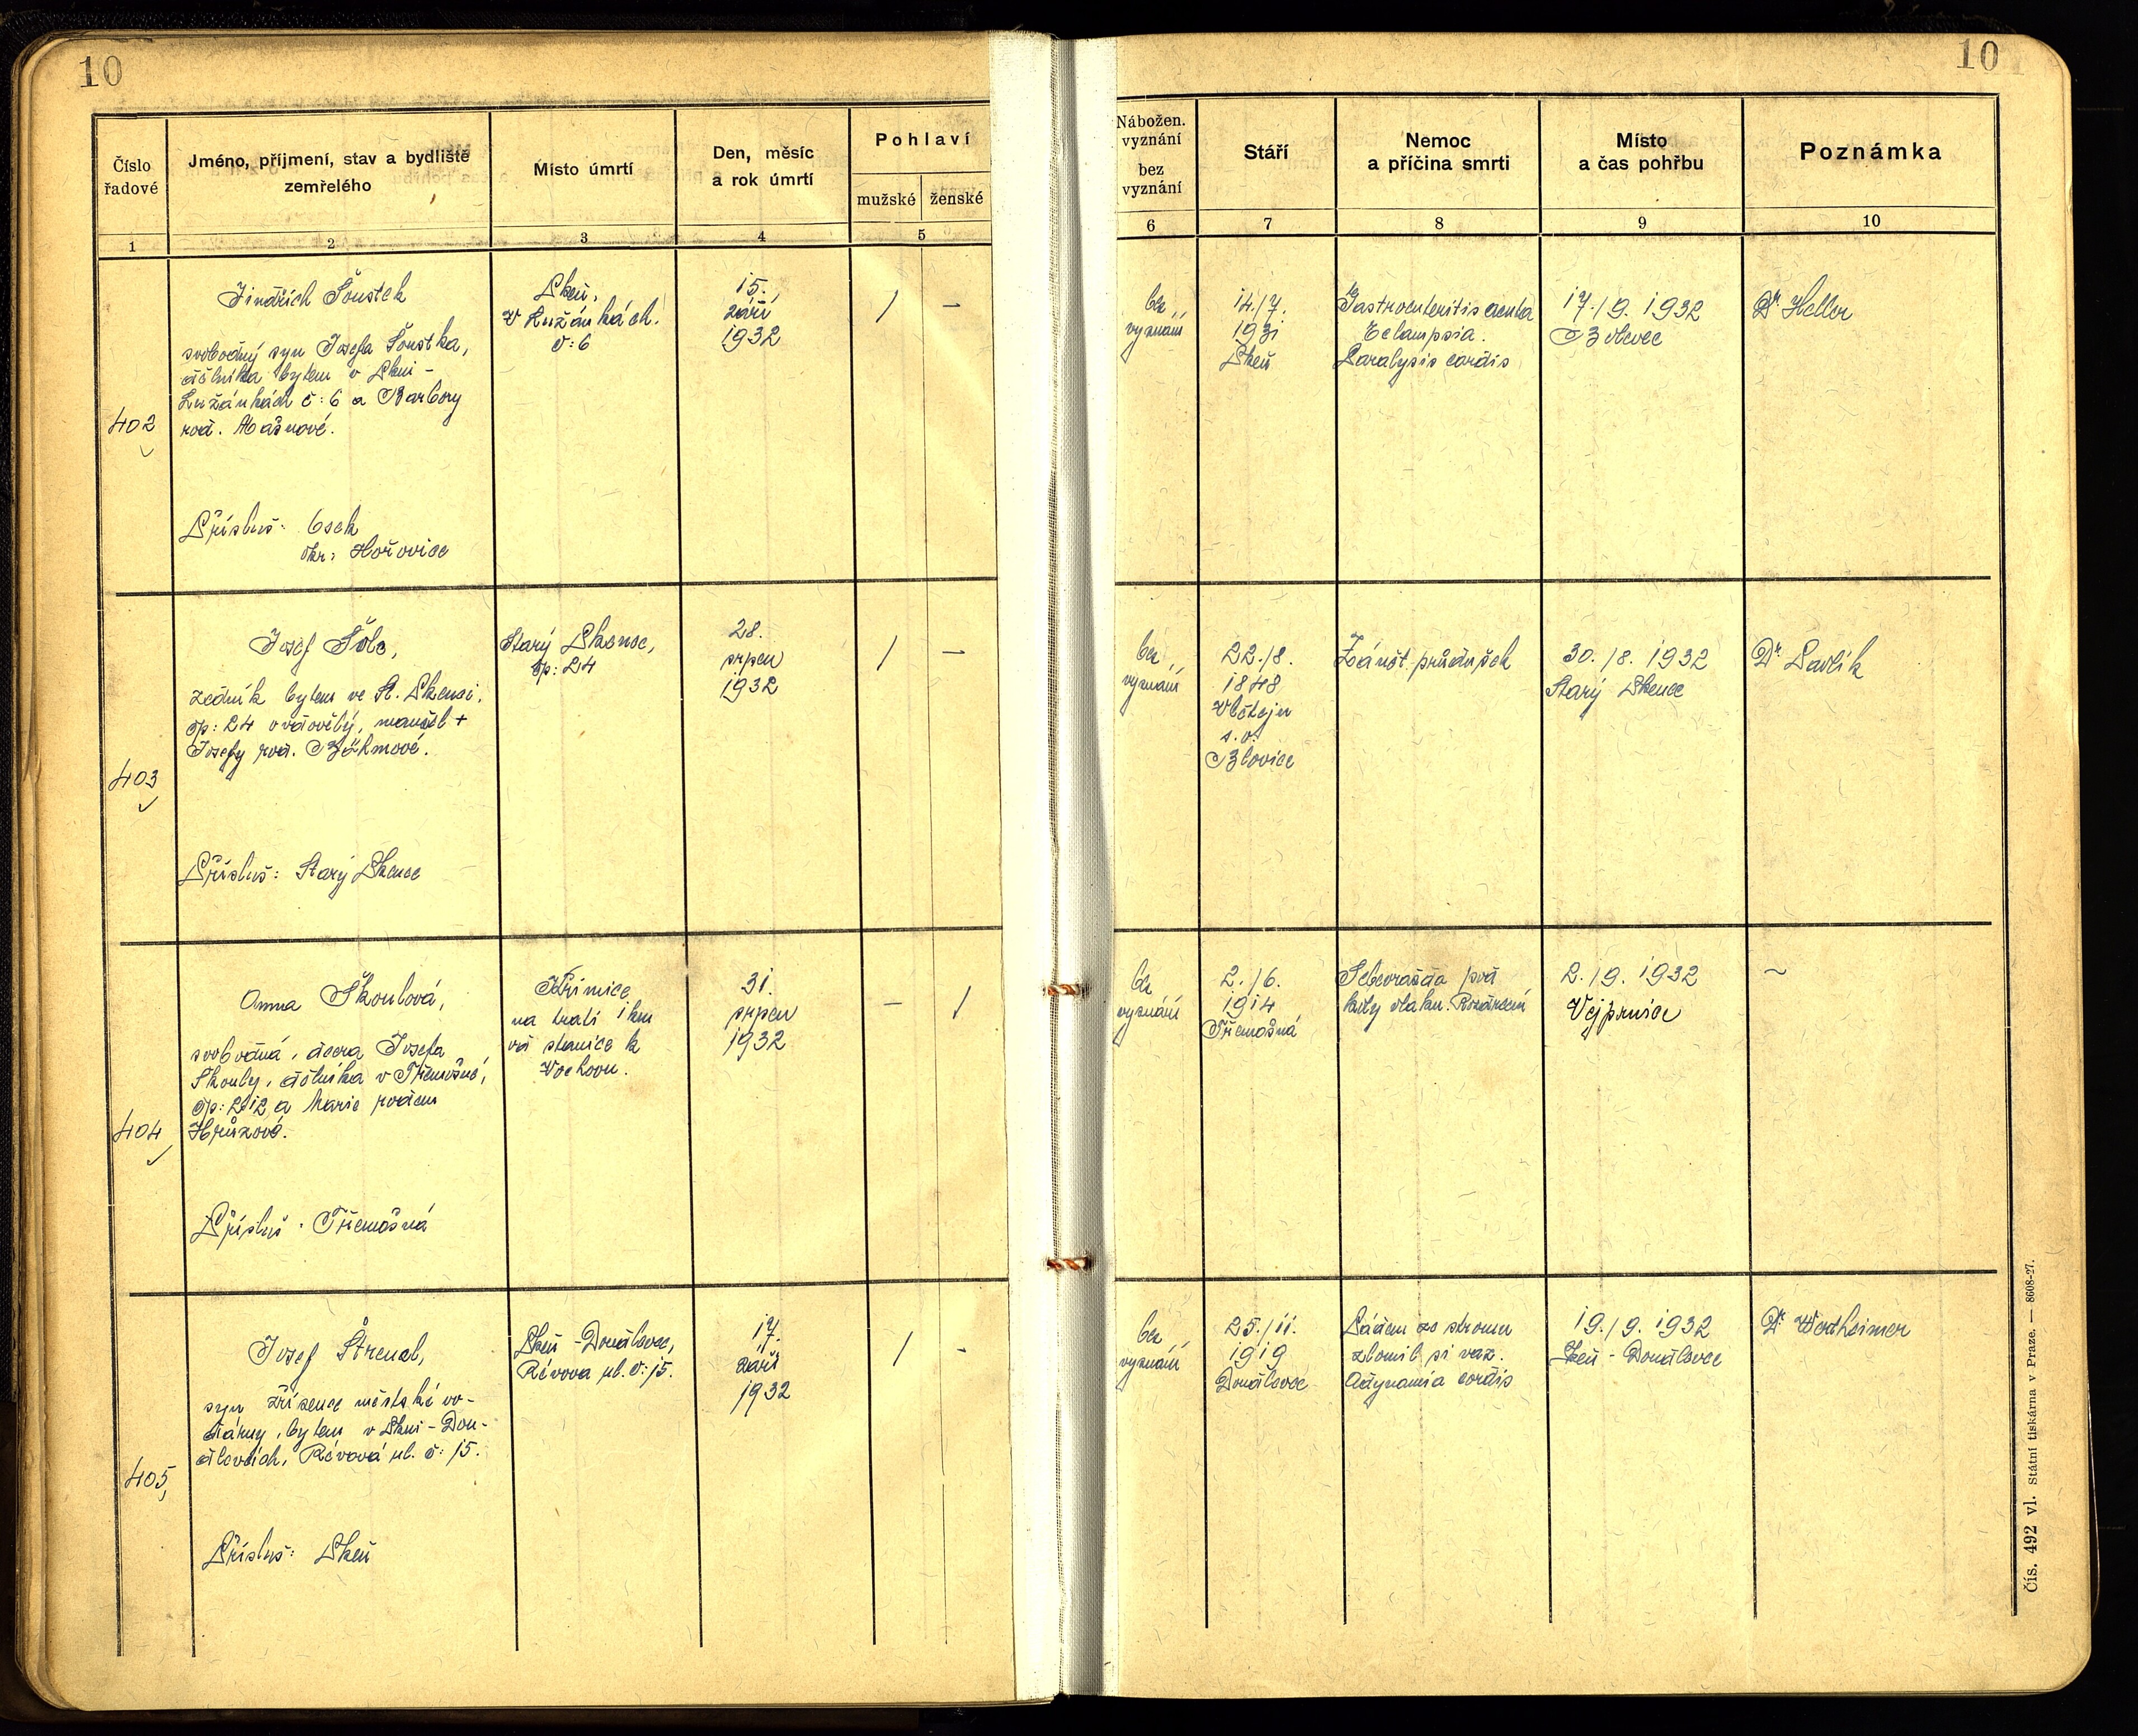 10
10
Číslo řadové
Jméno, příjmení, stav a bydliště zemřelého
Místo úmrtí
Den, měsíc a rok úmrtí
Pohlaví
mužské
ženské
Nábožen. vyznání
bez vyznání
Stáří
Nemoc a příčina smrti
Místo a čas pohřbu
Poznámka
1
2
3
4
5
6
7
8
9
10
402
Jindřich Šoustek
svobodný syn Josefa Šoustka,
dělníka bytem v Plzni -
Lužánkách č: 6 a Barbory
roz.
Přísluš: Osek
okr: Hořovice
Plzeň,
V Lužánkách.
č: 6
15.
září
1932
/
–
bez
vyznání
14./7.
1931
Plzeň
Gastroenteritis acuta
Eclampsia.
Paralysis cordis
17./9. 1932
Bolevec
Dr Heller
403
Josef Šolc,
zedník bytem ve St. Plzenci,
čp: 24 ovdovělý, manžel +
Josefy roz. Böhmové.
Přísluš: Starý Plzenec
Starý Plzenec,
čp: 24
28.
srpen
1932
/
–
bez
vyznání
22./8.
1848
Vlčtejn
s. o.
Blovice
Zánět průdušek
30./8. 1932
Starý Plzenec
Dr Pavlík
404
Anna Škoulová,
svobodná, dcera Josefa
Škouly, dělníka v Třemošné,
čp: 212 a Marie rozem
Hrůzové.
Přísluš: Třemošná
Křimice
na trati 1 km
od stanice k
Vochovu.
31.
srpen
1932
–
/
bez
vyznání
2./6.
1914
Třemošná
Sebevražda pod
koly vlaku. Rozdrcení
2./9. 1932
Vejprnice
~
405
Josef Štrencl,
syn zřízence městské vo-
dárny, bytem v Plzni - Dou-
dlevcích, Révová ul. č: 15.
Přísluš: Plzeň
Plzeň - Doudlevce,
Révova ul. č: 15.
17.
září
1932
/
-
bez
vyznání
25./11.
1919
Doudlevce
Pádem se stromu
zlomil si vaz.
Adynamia cordis
19./9. 1932
Plzeň - Doudlevce
Dr Wertheimer
Čís. 492 vl. Státní tiskárna v Praze. — 8608-27.